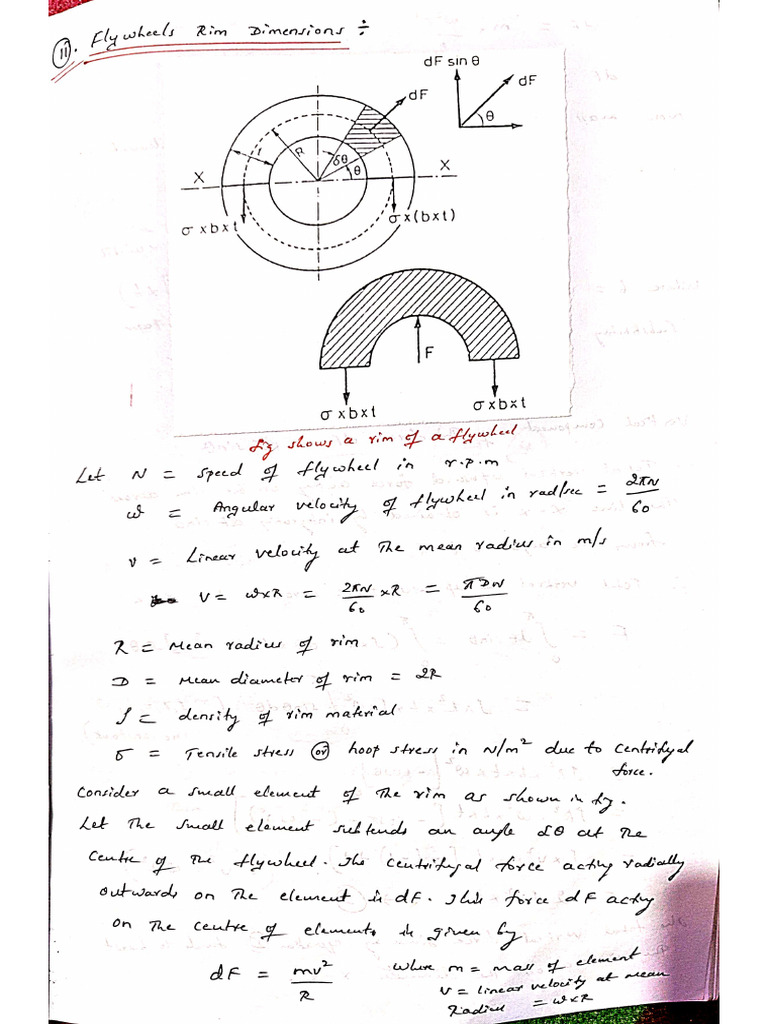 11. Flywheels Rim Dimensions ÷
dF sin θ
dF
dF
θ
R
t
δθ
θ
X
X
σ x b x t
σ x (b x t)
F
σ x b x t
σ x b x t
fig shows a rim of a flywheel
Let N = speed of flywheel in r.p.m
ω = Angular velocity of flywheel in rad/sec = 2πN/60
v = Linear velocity at the mean radius in m/s
V = ω×R = 2πN/60 ×R = πDN/60
R = Mean radius of rim
D = Mean diameter of rim = 2R
ρ = density of rim material
σ = Tensile stress or hoop stress in N/m² due to centrifugal
force.
Consider a small element of the rim as shown in fig.
Let the small element subtends an angle δθ at the
Centre of the flywheel. The centrifugal force acting radially
outwards on the element is dF. This force dF acting
on the centre of elements is given by
dF = mv²/R where m = mass of element
V = linear velocity at mean
Radius = ω×R